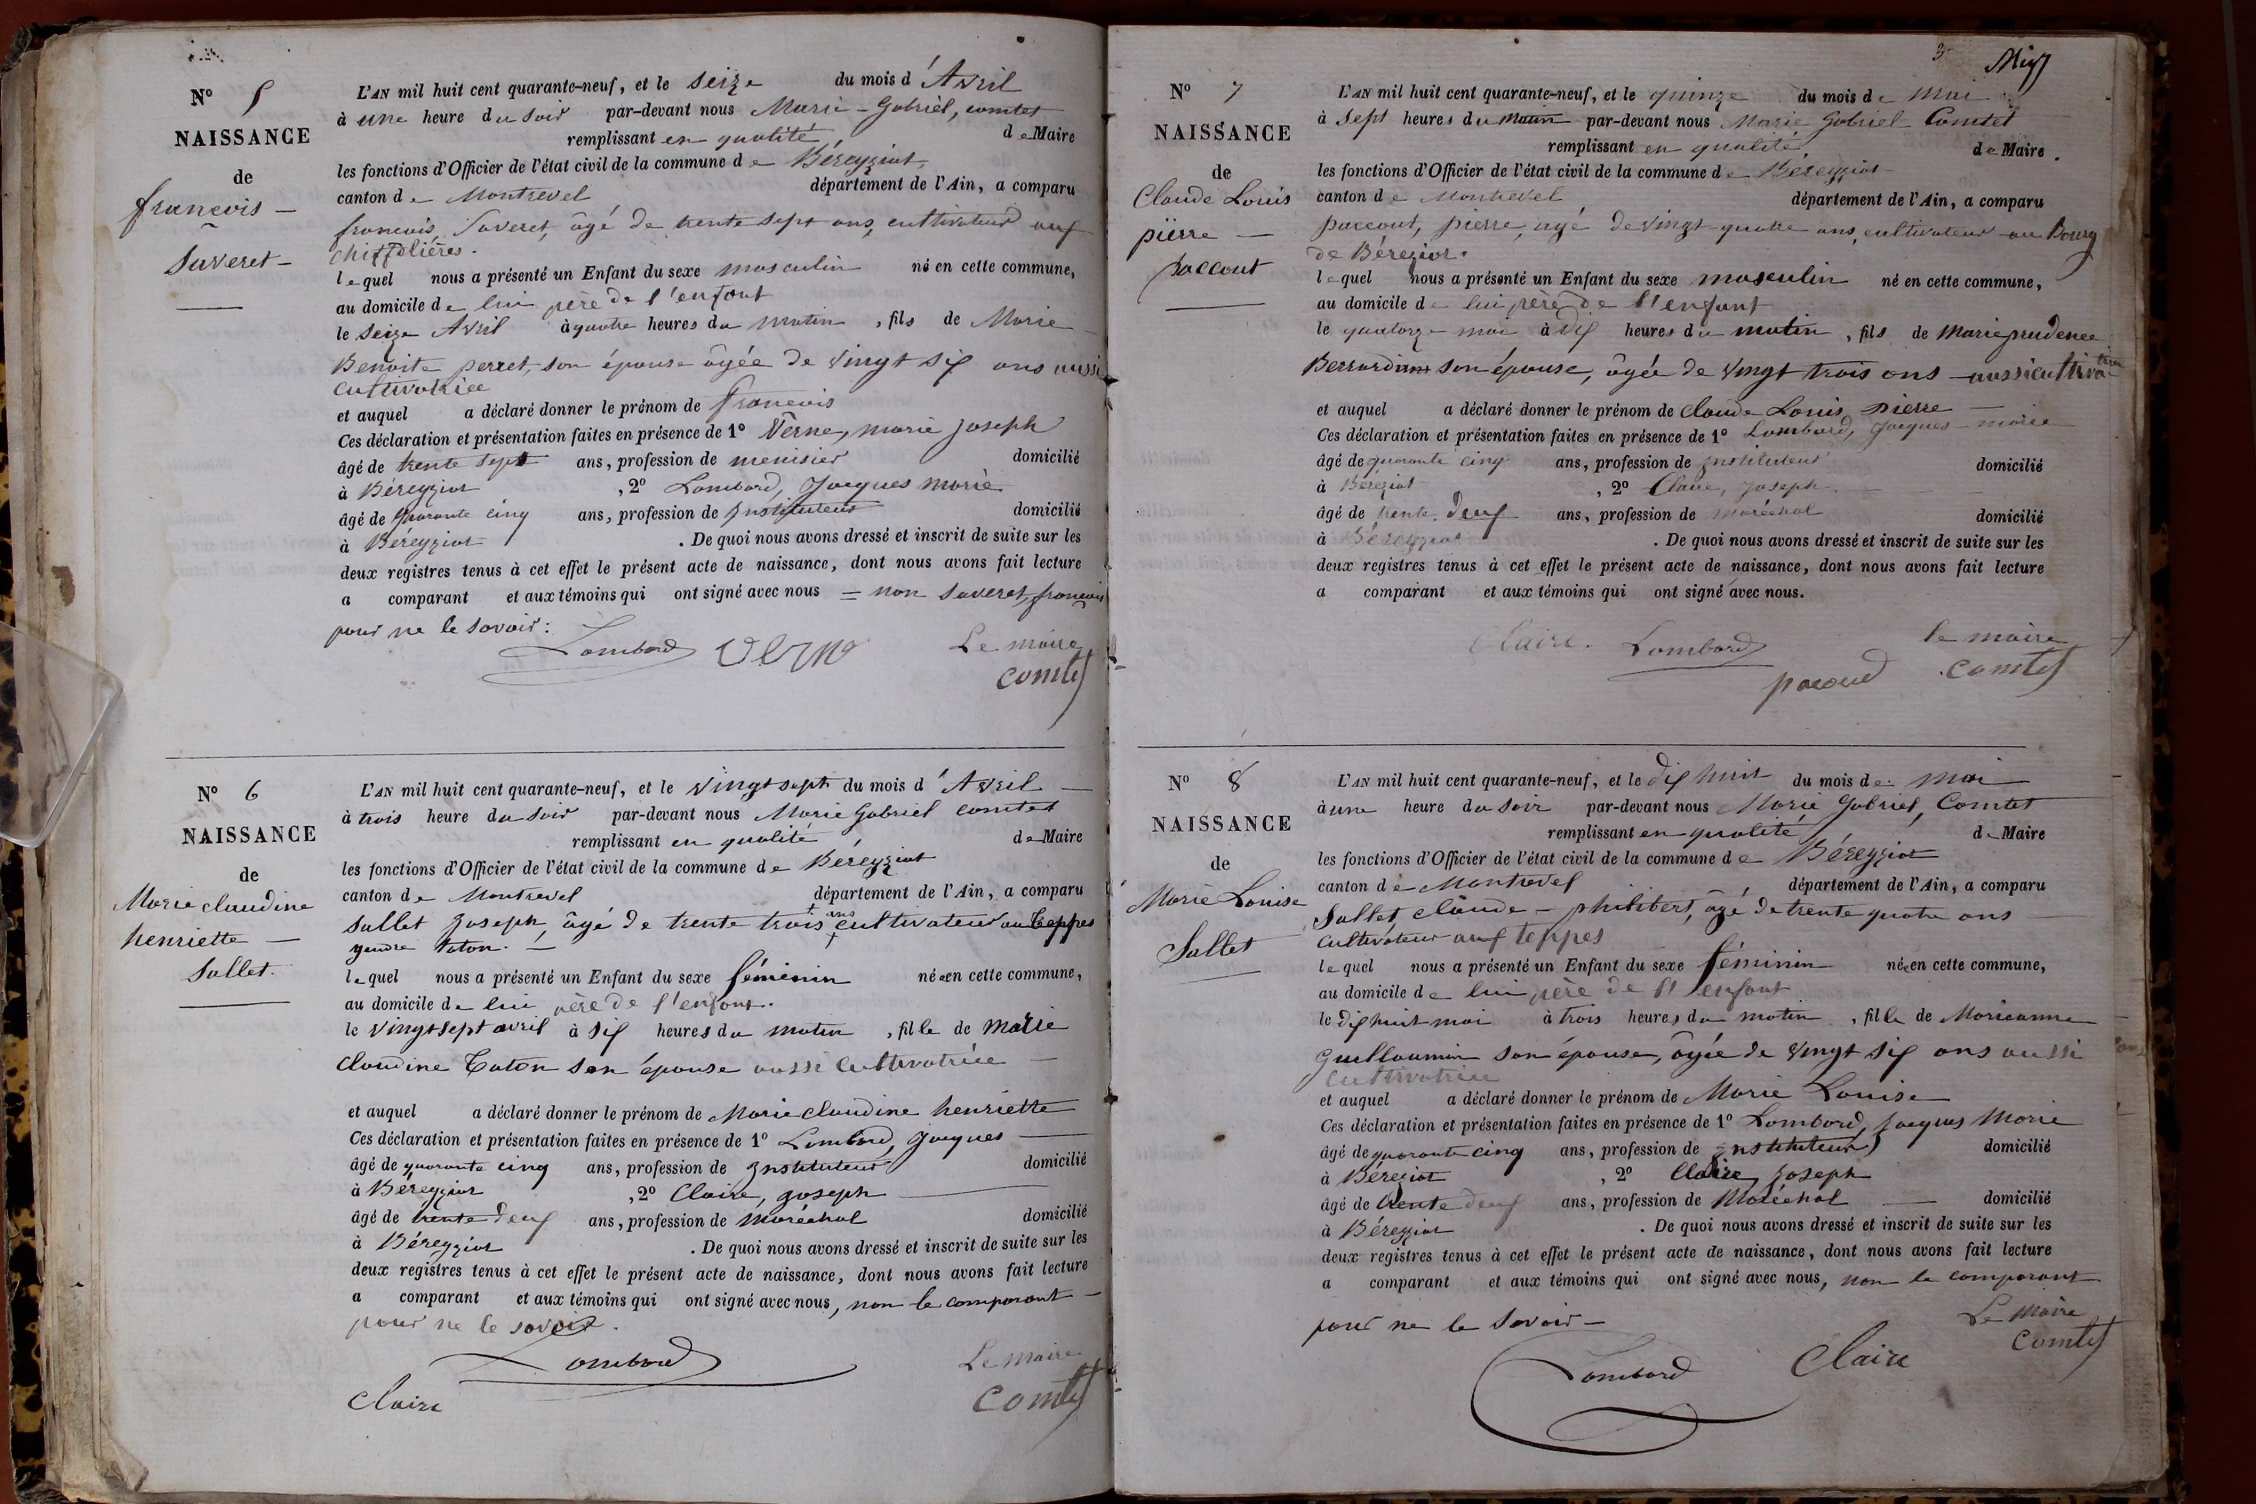 N° 5
NAISSANCE
de
françois —
Saveret —
L'AN mil huit cent quarante-neuf, et le seize du mois d'Avril
à une heure du soir par-devant nous Marie-Gabriel, comtet
remplissant en qualité de Maire
les fonctions d'Officier de l'état civil de la commune de Béreyziat
canton de Montrevel département de l'Ain, a comparu
francois, Saveret, âgé de trente sept ans, cultivateur aux
chiffolières.
lequel nous a présenté un Enfant du sexe masculin né en cette commune,
au domicile de lui père de l'enfant
le seize Avril à quatre heures du matin, fils de Marie
Benoite perret, son épouse âgée de vingt six ans aussi
cultivatrice
et auquel a déclaré donner le prénom de francois
Ces déclaration et présentation faites en présence de 1° Verne, marie joseph
âgé de trente sept ans, profession de menisier domicilié
à Béreyziat, 2° Lombard, Jacques marie
âgé de quarante cinq ans, profession de Instituteur domicilié
à Béreyziat. De quoi nous avons dressé et inscrit de suite sur les
deux registres tenus à cet effet le présent acte de naissance, dont nous avons fait lecture
a comparant et aux témoins qui ont signé avec nous = non Saveret, francois
pour ne le savoir:
Lombard Verne Le maire
Comtet
N° 6
NAISSANCE
de
Marie claudine
henriette —
Sallet.
L'AN mil huit cent quarante-neuf, et le vingt sept du mois d'Avril —
à trois heure du soir par-devant nous Marie Gabriel comtet
remplissant en qualité de Maire
les fonctions d'Officier de l'état civil de la commune de Béreyziat
canton de Montrevel département de l'Ain, a comparu
Sallet Joseph, âgé de trente trois ans cultivateur au Teppes
gendre Taton. —
lequel nous a présenté un Enfant du sexe féminin née en cette commune,
au domicile de lui père de l'enfant.
le vingt sept avril à six heures du matin, fille de Marie
Claudine Taton son épouse aussi cultivatrice —
et auquel a déclaré donner le prénom de Marie claudine henriette
Ces déclaration et présentation faites en présence de 1° Lombard, Jacques —
âgé de quarante cinq ans, profession de Instituteur domicilié
à Béreyziat, 2° Claire, Joseph —
âgé de trente deux ans, profession de Maréchal domicilié
à Béreyziat. De quoi nous avons dressé et inscrit de suite sur les
deux registres tenus à cet effet le présent acte de naissance, dont nous avons fait lecture
a comparant et aux témoins qui ont signé avec nous, non le comparant —
pour ne le savoir.
Lombard Le Maire
Claire Comtet
3
N° 7
NAISSANCE
de
Claude Louis
pierre —
paccout
L'AN mil huit cent quarante-neuf, et le quinze du mois de Mai
à sept heures du matin par-devant nous Marie Gabriel Comtet
remplissant en qualité de Maire.
les fonctions d'Officier de l'état civil de la commune de Béreyziat
canton de Montrevel département de l'Ain, a comparu
paccout, pierre, âgé de vingt-quatre ans, cultivateur au Bourg
de Béreziat.
lequel nous a présenté un Enfant du sexe masculin né en cette commune,
au domicile de lui père de l'enfant
le quatorze mai à dix heures du matin, fils de Marie prudence
son épouse, âgée de vingt trois ans — aussi cultivatrice
et auquel a déclaré donner le prénom de Claude Louis pierre —
Ces déclaration et présentation faites en présence de 1° Lombard, Jacques-marie
âgé de quarante cinq ans, profession de Instituteur domicilié
à Béreziat, 2° Claire, Joseph
âgé de trente deux ans, profession de maréchal domicilié
à Béreyziat. De quoi nous avons dressé et inscrit de suite sur les
deux registres tenus à cet effet le présent acte de naissance, dont nous avons fait lecture
a comparant et aux témoins qui ont signé avec nous.
Claire. Lombard le maire
pacoud Comtet
N° 8
NAISSANCE
de
Marie Louise
Sallet
L'AN mil huit cent quarante-neuf, et le dix huit du mois de mai
à une heure du soir par-devant nous Marie Gabriel, Comtet
remplissant en qualité de Maire
les fonctions d'Officier de l'état civil de la commune de Béreyziat
canton de Montrevel département de l'Ain, a comparu
Sallet, claude-philibert, âgé de trente quatre ans
cultivateur aux teppes
lequel nous a présenté un Enfant du sexe féminin née en cette commune,
au domicile de lui père de l'enfant
le dix huit mai à trois heures du matin, fille de Marieanne
Guillaumin son épouse, âgée de vingt six ans aussi
cultivatrice
et auquel a déclaré donner le prénom de Marie Louise
Ces déclaration et présentation faites en présence de 1° Lombard, Jacques Marie
âgé de quarante cinq ans, profession de Instituteur domicilié
à Béreziat, 2° Claire, Joseph
âgé de trente deux ans, profession de Maréchal — domicilié
à Béreyziat. De quoi nous avons dressé et inscrit de suite sur les
deux registres tenus à cet effet le présent acte de naissance, dont nous avons fait lecture
a comparant et aux témoins qui ont signé avec nous, non le comparant
pour ne le savoir —
Le Maire
Lombard Claire Comtet